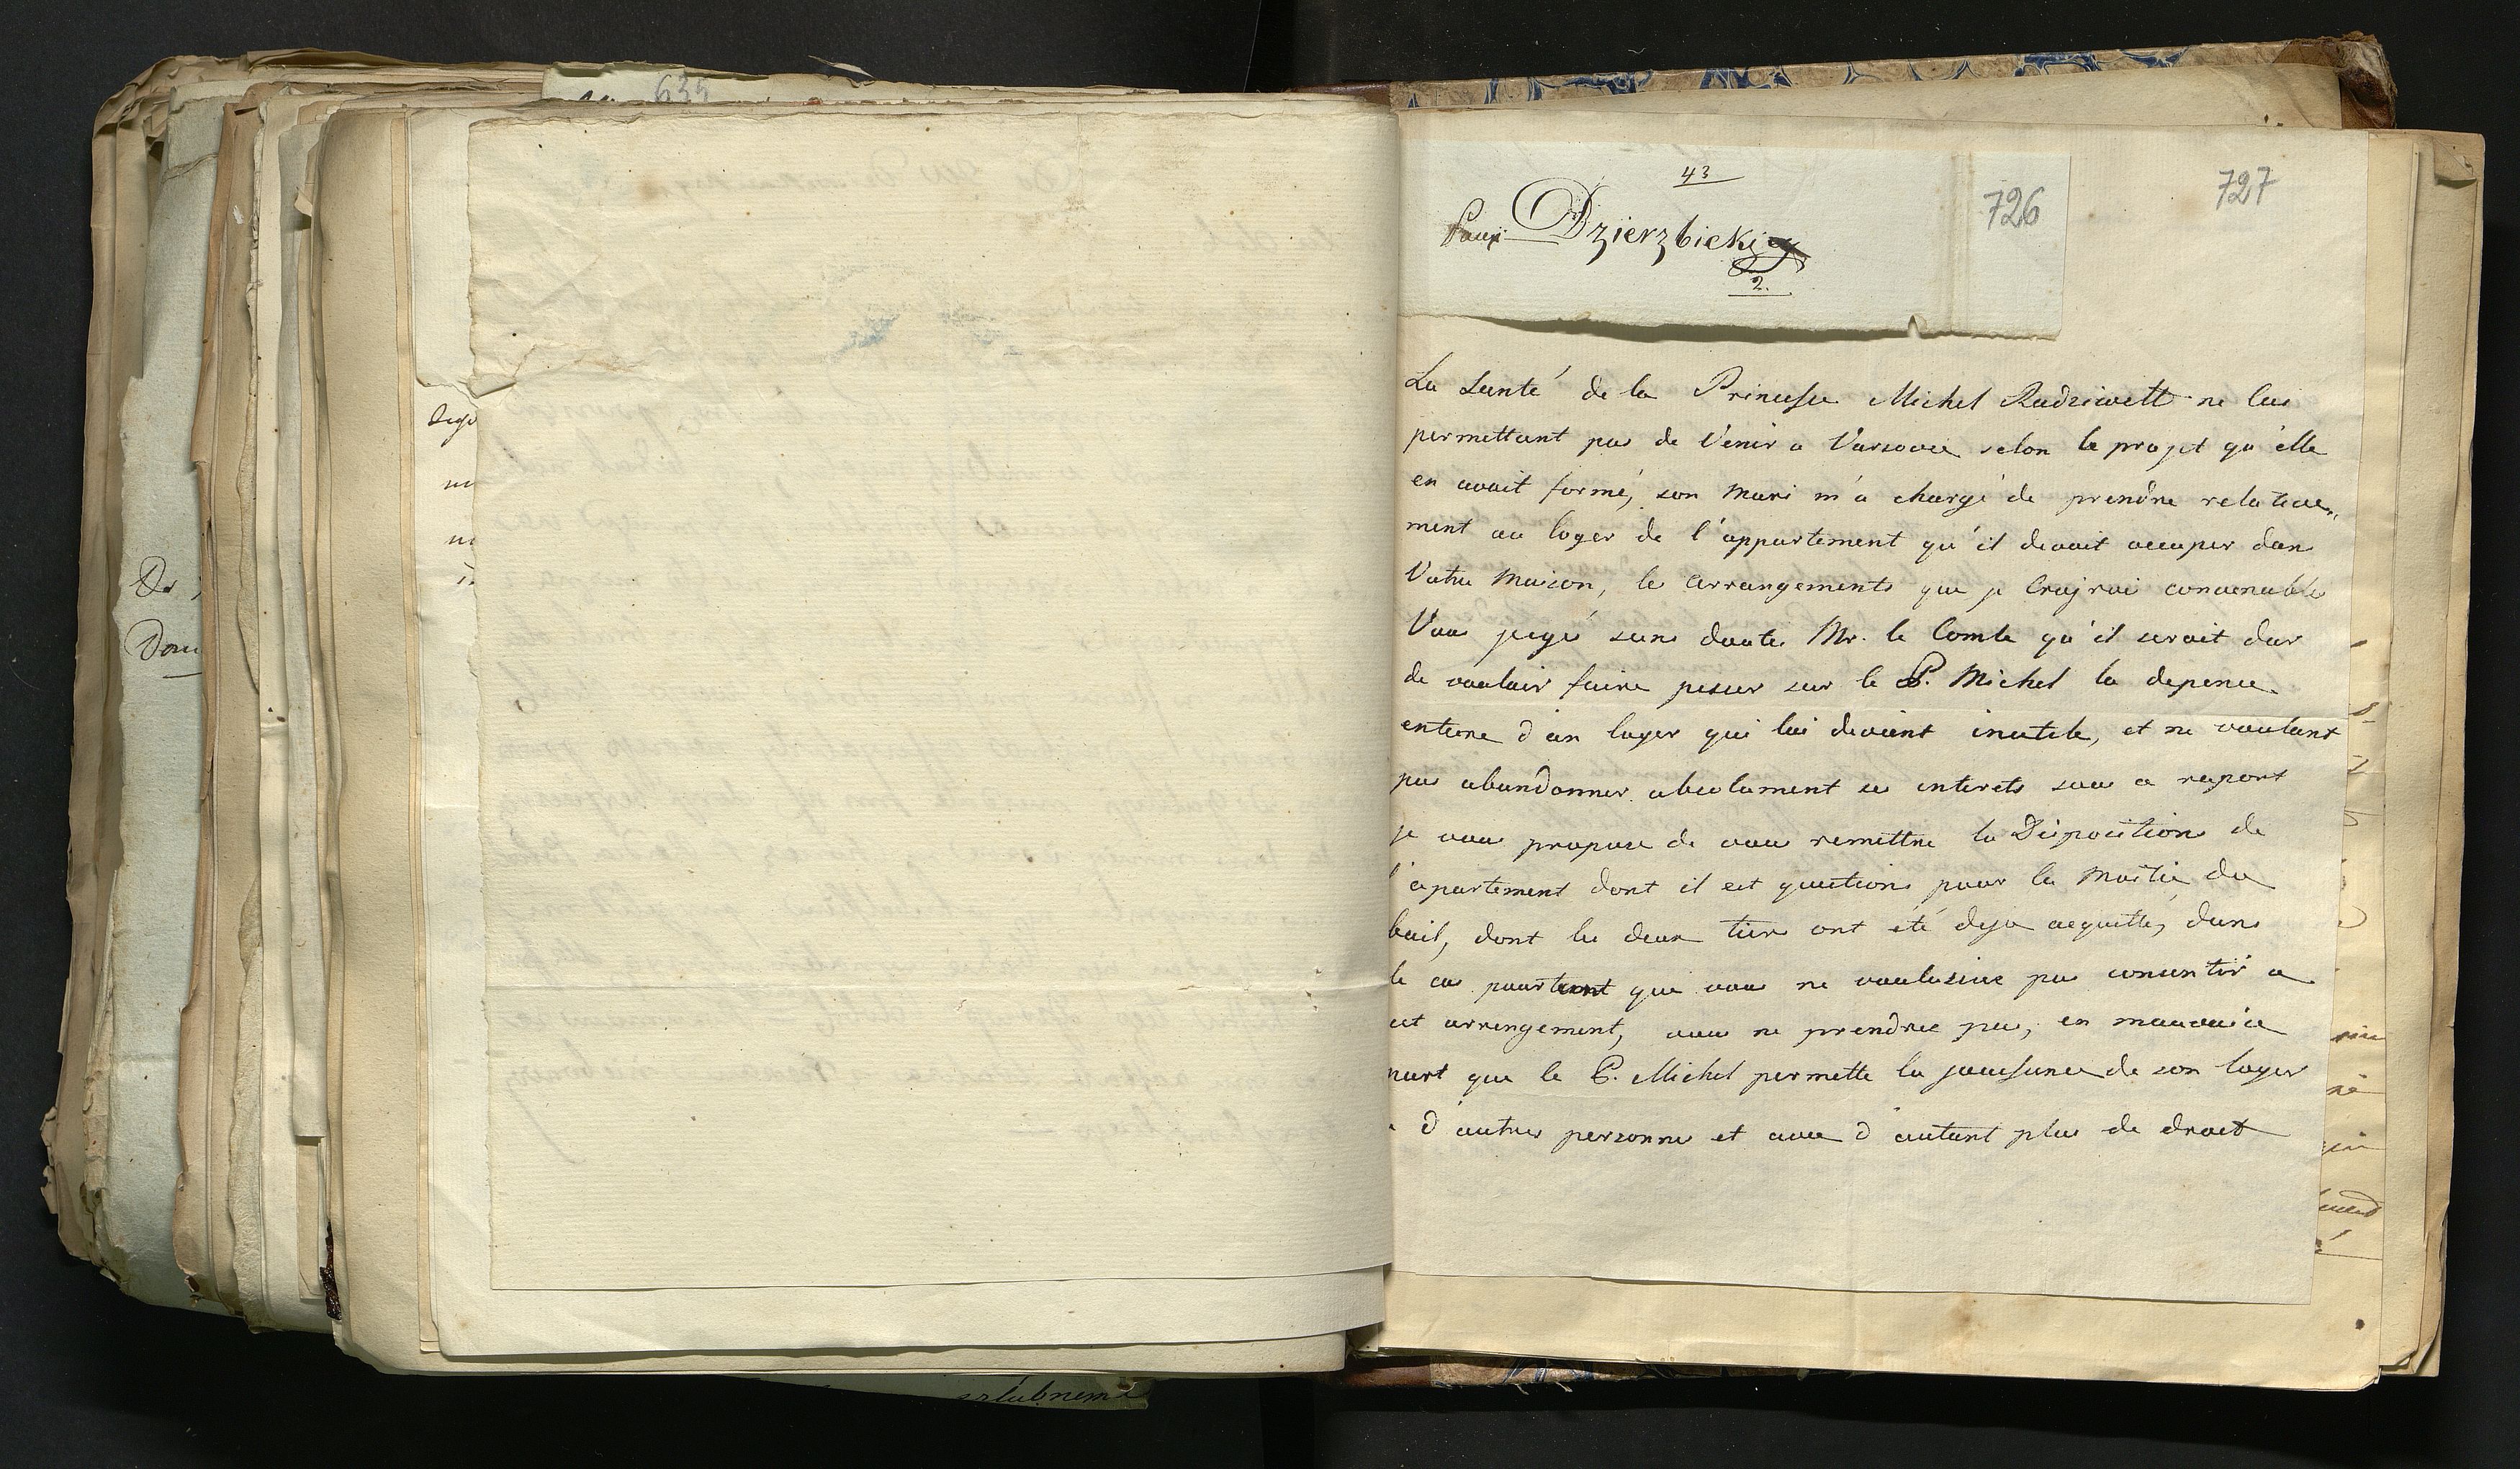 635
43
726
727
Pani Dzierzbickiey
2.
La Santé de la Princesse Michel Radziwill ne lui
permettant pas de Venir a Varsovie selon le projet qu'elle
en avait formé, son Mari m'a chargé de prendre relative„
ment au loyer de l'appartement qu'il devait occuper dans
Votre Maison, les arrangements que je Crojrai convenables
Vous jugé sans doute Mr. le Comte qu'il serait dur
de vouloir faire peser sur le P. Michel la depence
entiere d'un loyer qui lui devient inutile, et ne voulant
pas abandonner absolument ses interets sous ce raport
je vous propose de vous remettre la Disposition de
l'apartement dont il est question pour la Moitié du
bail, dont les deux tiers ont été deja acquitté, dans
le cas pourtant que vous ne voulussiez pas consentir a
cet arrengement, vous ne prendrez pas, en mauvaise
part que le P. Michel permette la jouissance de son loyer
a d'autres personnes et avec d'autant plus de droit
Do
szlubnemi